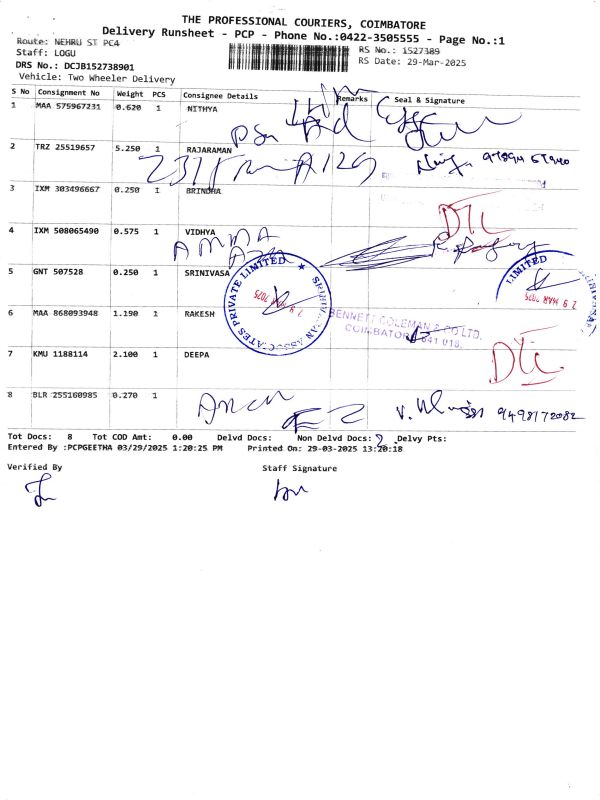 THE PROFESSIONAL COURIERS, COIMBATORE
Delivery Runsheet - PCP - Phone No.:0422-3505555 - Page No.:1
Route: NEHRU ST PC4
RS No.: 1527389
Staff: LOGU
RS Date: 29-Mar-2025
DRS No.: DCJB152738901
Vehicle: Two Wheeler Delivery
S No Consignment No Weight PCS Consignee Details Remarks Seal & Signature
1 MAA 575967231 0.620 1 NITHYA
2 TRZ 25519657 5.250 1 RAJARAMAN
3 IXM 303496667 0.250 1 BRINDHA
DTC
4 IXM 508065490 0.575 1 VIDHYA
AMMA
5 GNT 507528 0.250 1 SRINIVASA
SRINIVASAN ASSOCIATES PRIVATE LIMITED
29 MAR 2025
LIMITED
29 MAR 2025
6 MAA 868093948 1.190 1 RAKESH
BENNETT COLEMAN & CO LTD.
COIMBATORE 641 018.
7 KMU 1188114 2.100 1 DEEPA
DTC
8 BLR 255160985 0.270 1
9498172082
Tot Docs: 8 Tot COD Amt: 0.00 Delvd Docs: Non Delvd Docs: 2 Delvy Pts:
Entered By :PCPGEETHA 03/29/2025 1:20:25 PM Printed On: 29-03-2025 13:20:18
Verified By Staff Signature